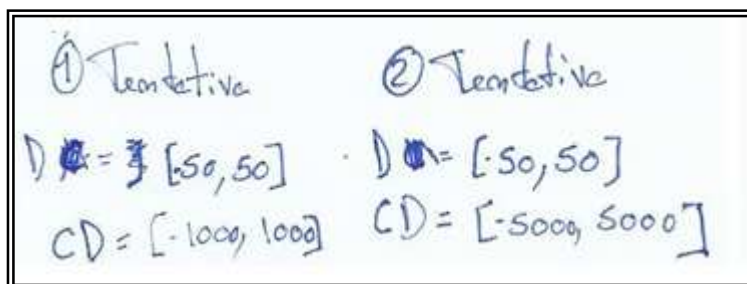 ① Tentativa
D = [-50, 50]
CD = [-1000, 1000]
② Tentativa
D = [-50, 50]
CD = [-5000, 5000]